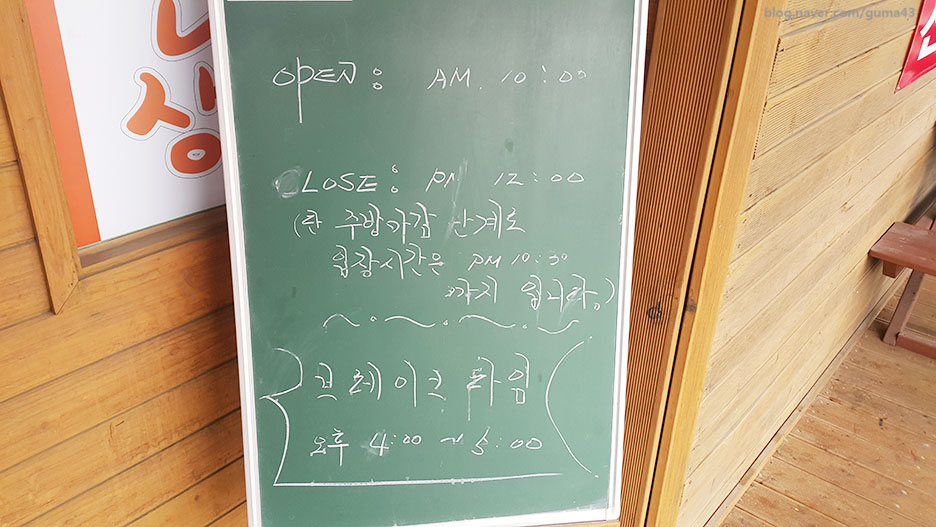 blog.naver.com/guma43
OPEN : AM. 10 : 00
CLOSE : PM 12 : 00
(주방마감 관계로
입장시간은 PM 10:30
까지 입니다.)
브레이크 타임
오후 4:00 ~ 5:00